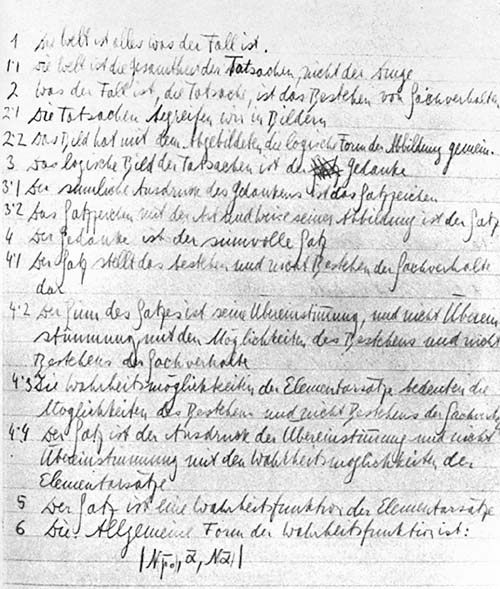 1 Die Welt ist alles was der Fall ist.
1·1 Die Welt ist die Gesamtheit der Tatsachen, nicht der Dinge
2 Was der Fall ist, die Tatsache, ist das Bestehen von Sachverhalten
2·1 Die Tatsachen begreifen wir in Bildern
2·2 Das Bild hat mit dem Abgebildeten die logische Form der Abbildung gemein.
3 Das logische Bild der Tatsachen ist der Gedanke
3·1 Der sinnliche Ausdruck des Gedankens ist das Satzzeichen
3·2 Das Satzzeichen mit der Art und Weise seiner Abbildung ist der Satz
4 Der Gedanke ist der sinnvolle Satz
4·1 Der Satz stellt das bestehen und nicht Bestehen der Sachverhalte
dar
4·2 Der Sinn des Satzes ist seine Übereinstimmung, und nicht Überein
stimmung mit den Möglichkeiten des Bestehens und nicht
Bestehens der Sachverhalte
4·3 Die Wahrheitsmöglichkeiten der Elementarsätze bedeuten die
Möglichkeiten des Bestehens und nicht Bestehens der Sachverh
4·4 Der Satz ist der Ausdruck der Übereinstimmung und nicht
Übereinstimmung mit den Wahrheitsmöglichkeiten der
Elementarsätze
5 Der Satz ist eine Wahrheitsfunktion der Elementarsätze
6 Die Allgemeine Form der Wahrheitsfunktion ist: